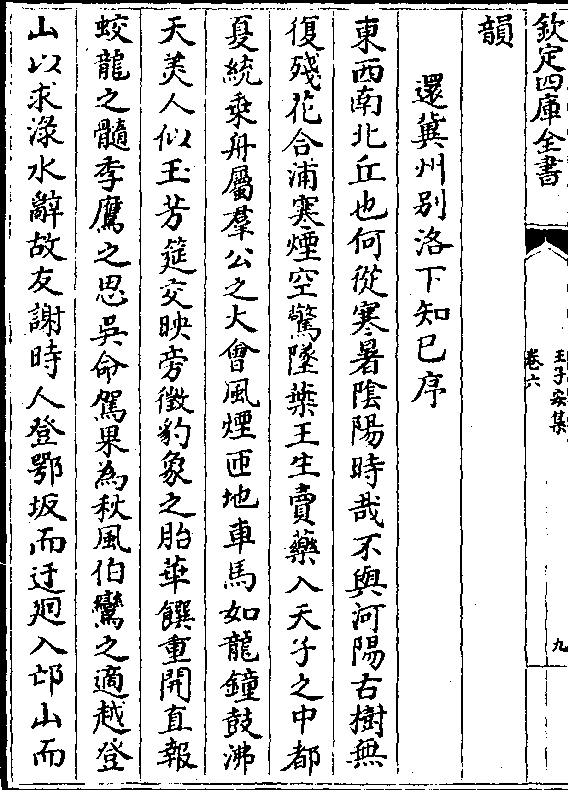 欽定四庫全書
王子安集
卷六
九
韻
還冀州別洛下知已序
東西南北丘也何從寒暑陰陽時哉不與河陽古樹無
復殘花合浦寒煙空驚墜葉王生賣藥入天子之中都
夏統乗舟屬羣公之大會風煙匝地車馬如龍鐘鼓沸
天美人似玉芳筵交映旁徵豹象之胎華饌重開直報
蛟龍之髓季鷹之思吳命駕果為秋風伯鸞之適越登
山以求淥水辭故友謝時人登鄂坂而迂廻入邙山而